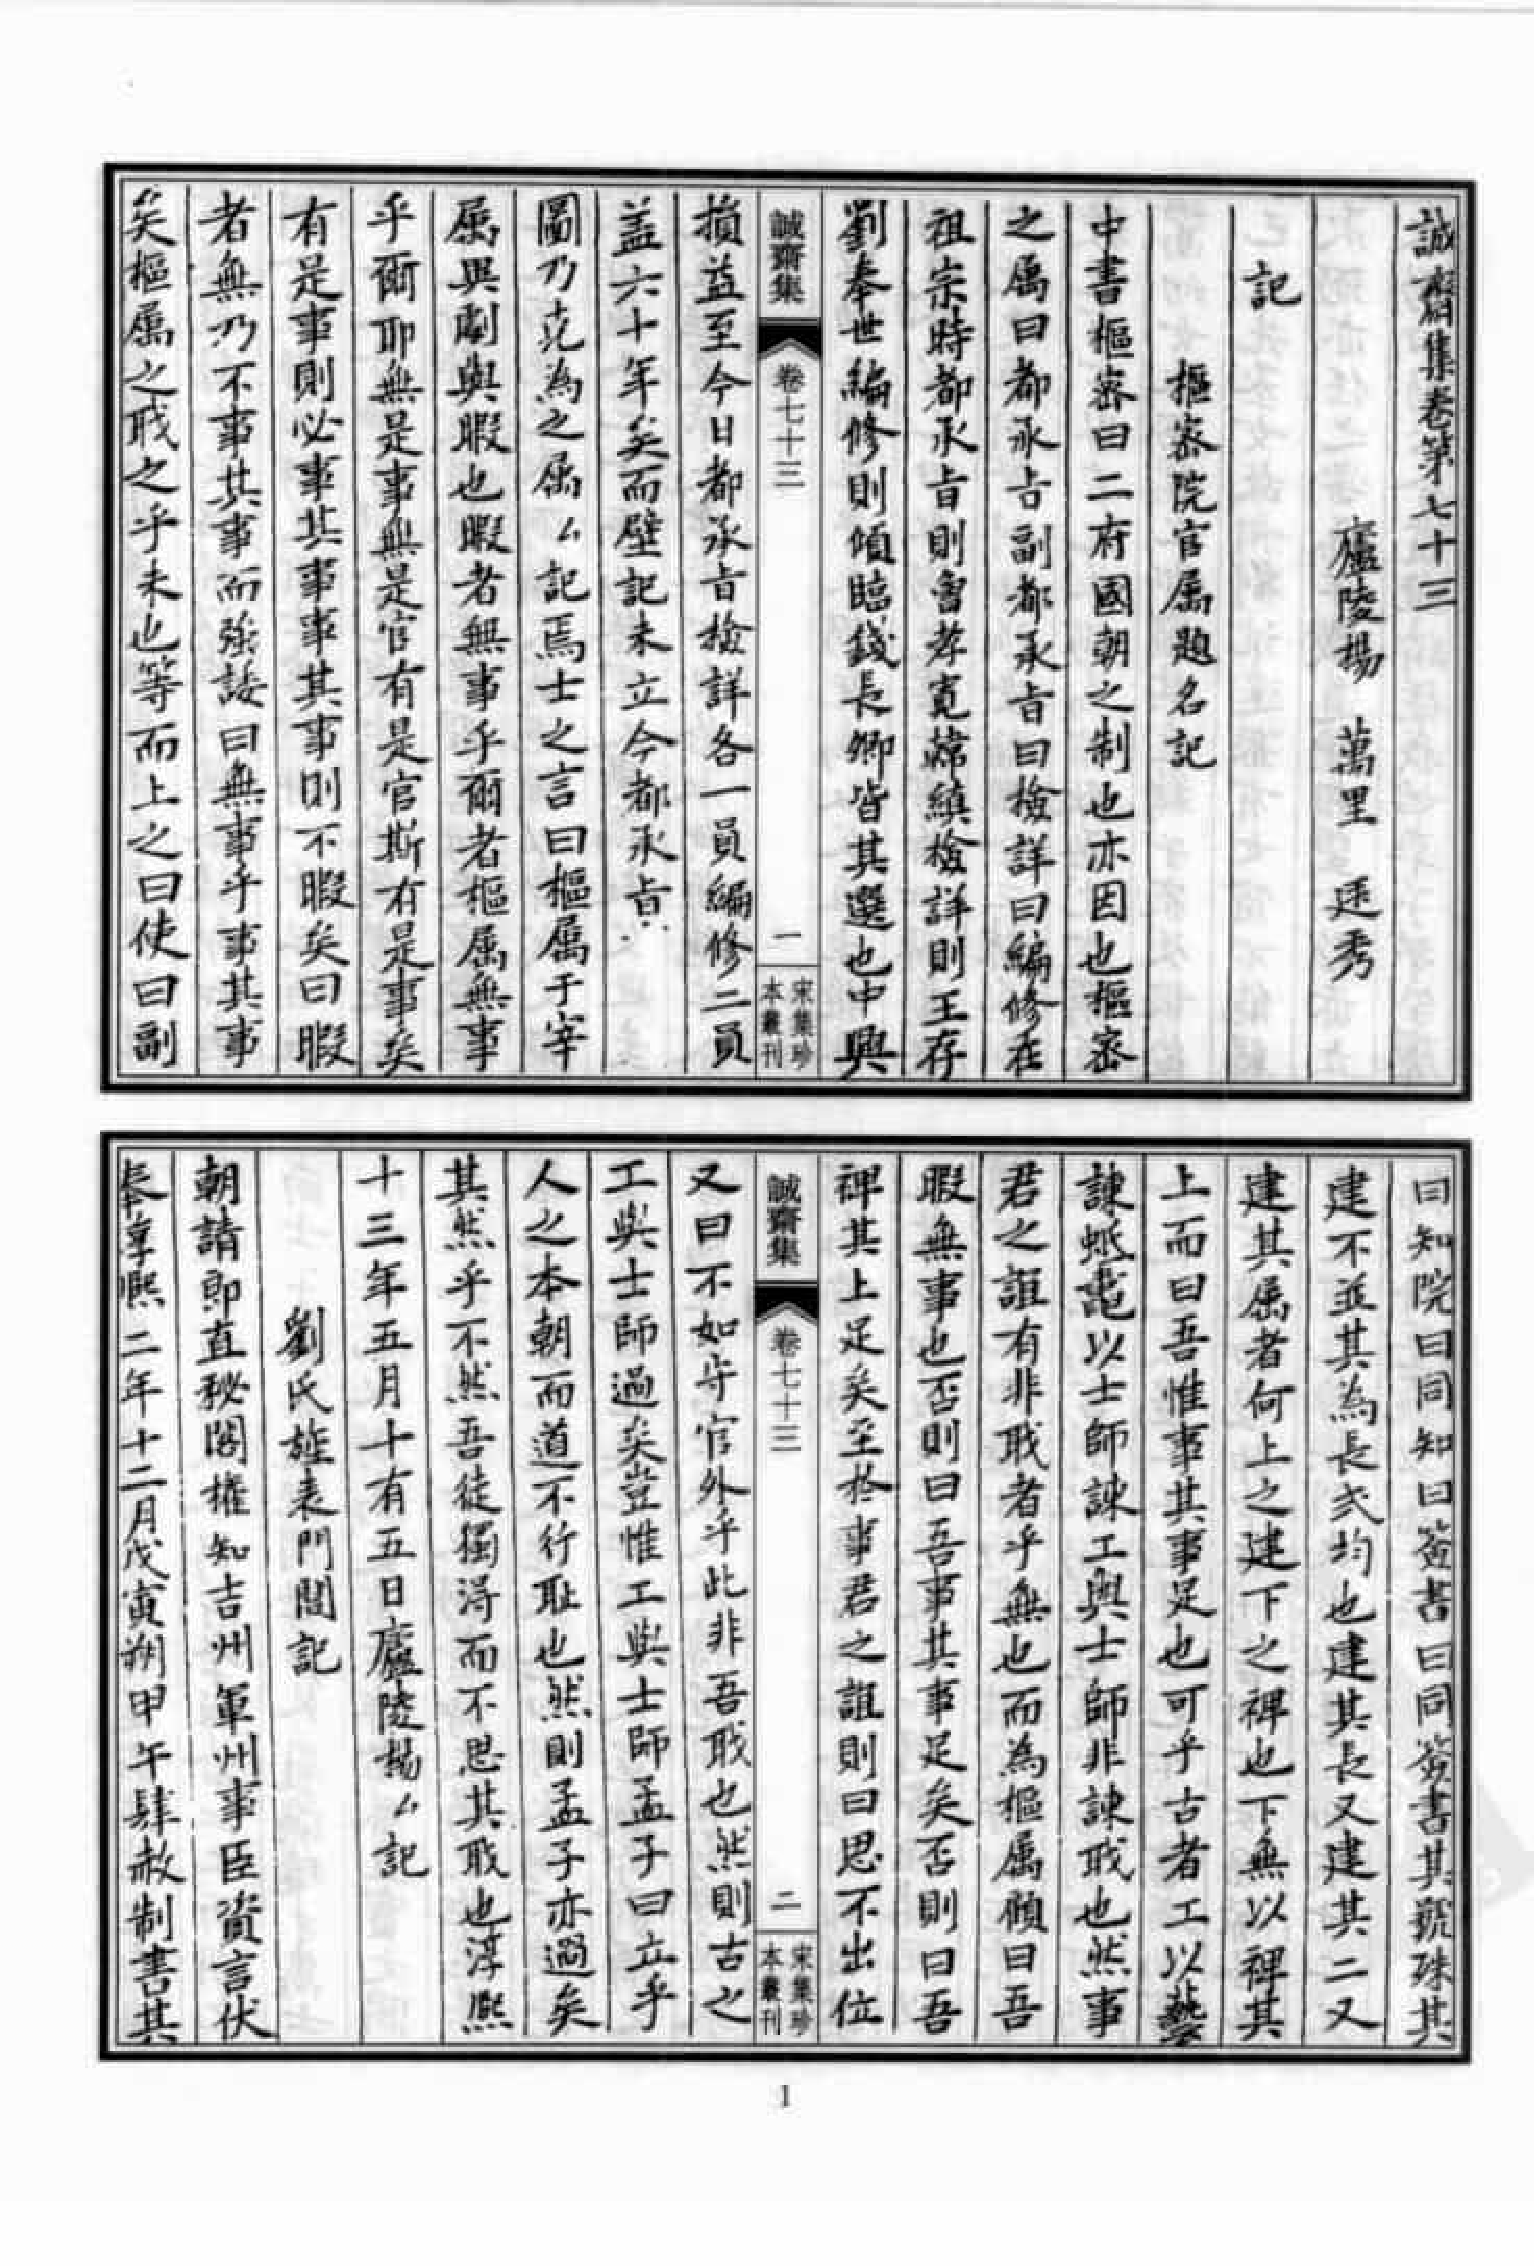 誠齋集卷第七十三
廬陵楊 萬里 廷秀
記
樞宻院官属題名記
中書樞宻曰二府國朝之制也亦因也樞宻
之属曰都承㫖副都承㫖曰檢詳曰編修在
祖宗時都承㫖則曾孝寛韓縝檢詳則王存
劉奉世編修則傾臨錢長卿皆其選也中興
誠齋集
卷七十三
一
宋集珍
本叢刊
損益至今日都承㫖檢詳各一員編修二員
盖六十年矣而壁記未立今都承㫖
圖乃克為之属厶記焉士之言曰樞属于宰
属與劇與暇也暇者無事乎爾者樞属無事
乎爾耶無是事無是官有是官斯有是事矣
有是事則必事其事事其事則不暇矣曰暇
者無乃不事其事而強諉曰無事乎事其事
矣樞属之職之乎未也等而上之曰使曰副
曰知院曰同知曰簽書曰同簽書其號殊其
建不並其為長貳均也建其長又建其二又
建其属者何上之建下之禆也下無以禆其
上而曰吾惟事其事足也可乎古者工以藝
諫蚳鼃以士師諫工與士師非諫職也然事
君之誼有非職者乎無也而為樞属顧曰吾
暇無事也否則曰吾事其事足矣否則曰吾
禆其上足矣至於事君之誼則曰思不出位
誠齋集
卷七十三
二
宋集珍
本叢刊
又曰不如守官外乎此非吾職也然則古之
工與士師過矣豈惟工與士師孟子曰立乎
人之本朝而道不行耻也然則孟子亦過矣
其然乎不然吾徒獨淂而不思其職也淳熙
十三年五月十有五日廬陵楊厶記
劉氏旌表門閭記
朝請郎直秘閣權知吉州軍州事臣資言伏
奉淳熙二年十二月戊寅朔甲午肆赦制書其